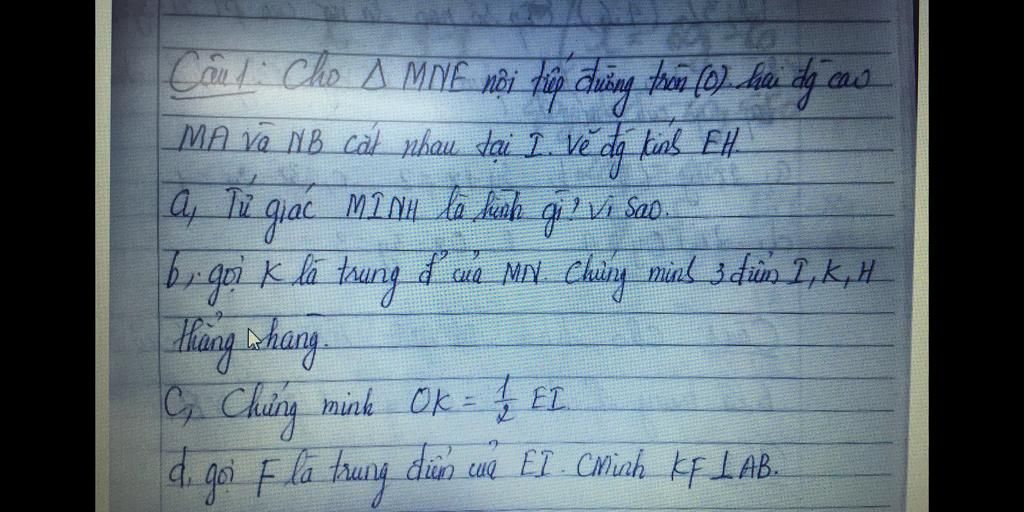 Câu 1: Cho Δ MNE nội tiếp đường tròn (O). hai đg cao
MA và NB cắt nhau tại I. Vẽ đg kính EH.
a, Tứ giác MINH là hình gì? Vì sao.
b, gọi K là trung đ' của MN. Chứng minh 3 điểm I, K, H
thẳng hàng.
c, Chứng minh OK = 1/2 EI
d, gọi F là trung điểm của EI. CMinh KF ⊥ AB.